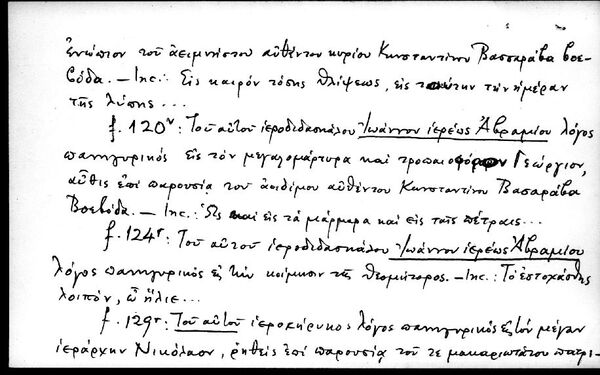 ἐνώπιον τοῦ ἀειμνήστου αὐθέντου κυρίου Κωνσταντίνου Βασσαράβα βοε-
βόδα. – Inc.: Εἰς καιρὸν τόσης θλίψεως, εἰς ταύτην τὴν ἡμέραν
τῆς λύπης...
f. 120ᵛ: Τοῦ αὐτοῦ ἱεροδιδασκάλου Ἰωάννου ἱερέως Ἀβραμίου λόγος
πανηγυρικὸς εἰς τὸν μεγαλομάρτυρα καὶ τροπαιοφόρον Γεώργιον,
αὖθις ἐπὶ παρουσίᾳ τοῦ ἀοιδίμου αὐθέντου Κωνσταντίνου Βασαράβα
Βοεβόδα. – Inc.: Ἕως καὶ εἰς τὰ μάρμαρα καὶ εἰς ταῖς πέτραις...
f. 124ʳ: Τοῦ αὐτοῦ ἱεροδιδασκάλου Ἰωάννου ἱερέως Ἀβραμίου
λόγος πανηγυρικὸς εἰς τὴν κοίμησιν τῆς θεομήτορος. – Inc.: Τὸ ἐστοχάσθης
λοιπόν, ὦ ἥλιε...
f. 129ʳ: Τοῦ αὐτοῦ ἱεροκήρυκος λόγος πανηγυρικὸς εἰς τὸν μέγαν
ἱεράρχην Νικόλαον, ῥηθεὶς ἐπὶ παρουσίᾳ τοῦ τε μακαριωτάτου πατρι-